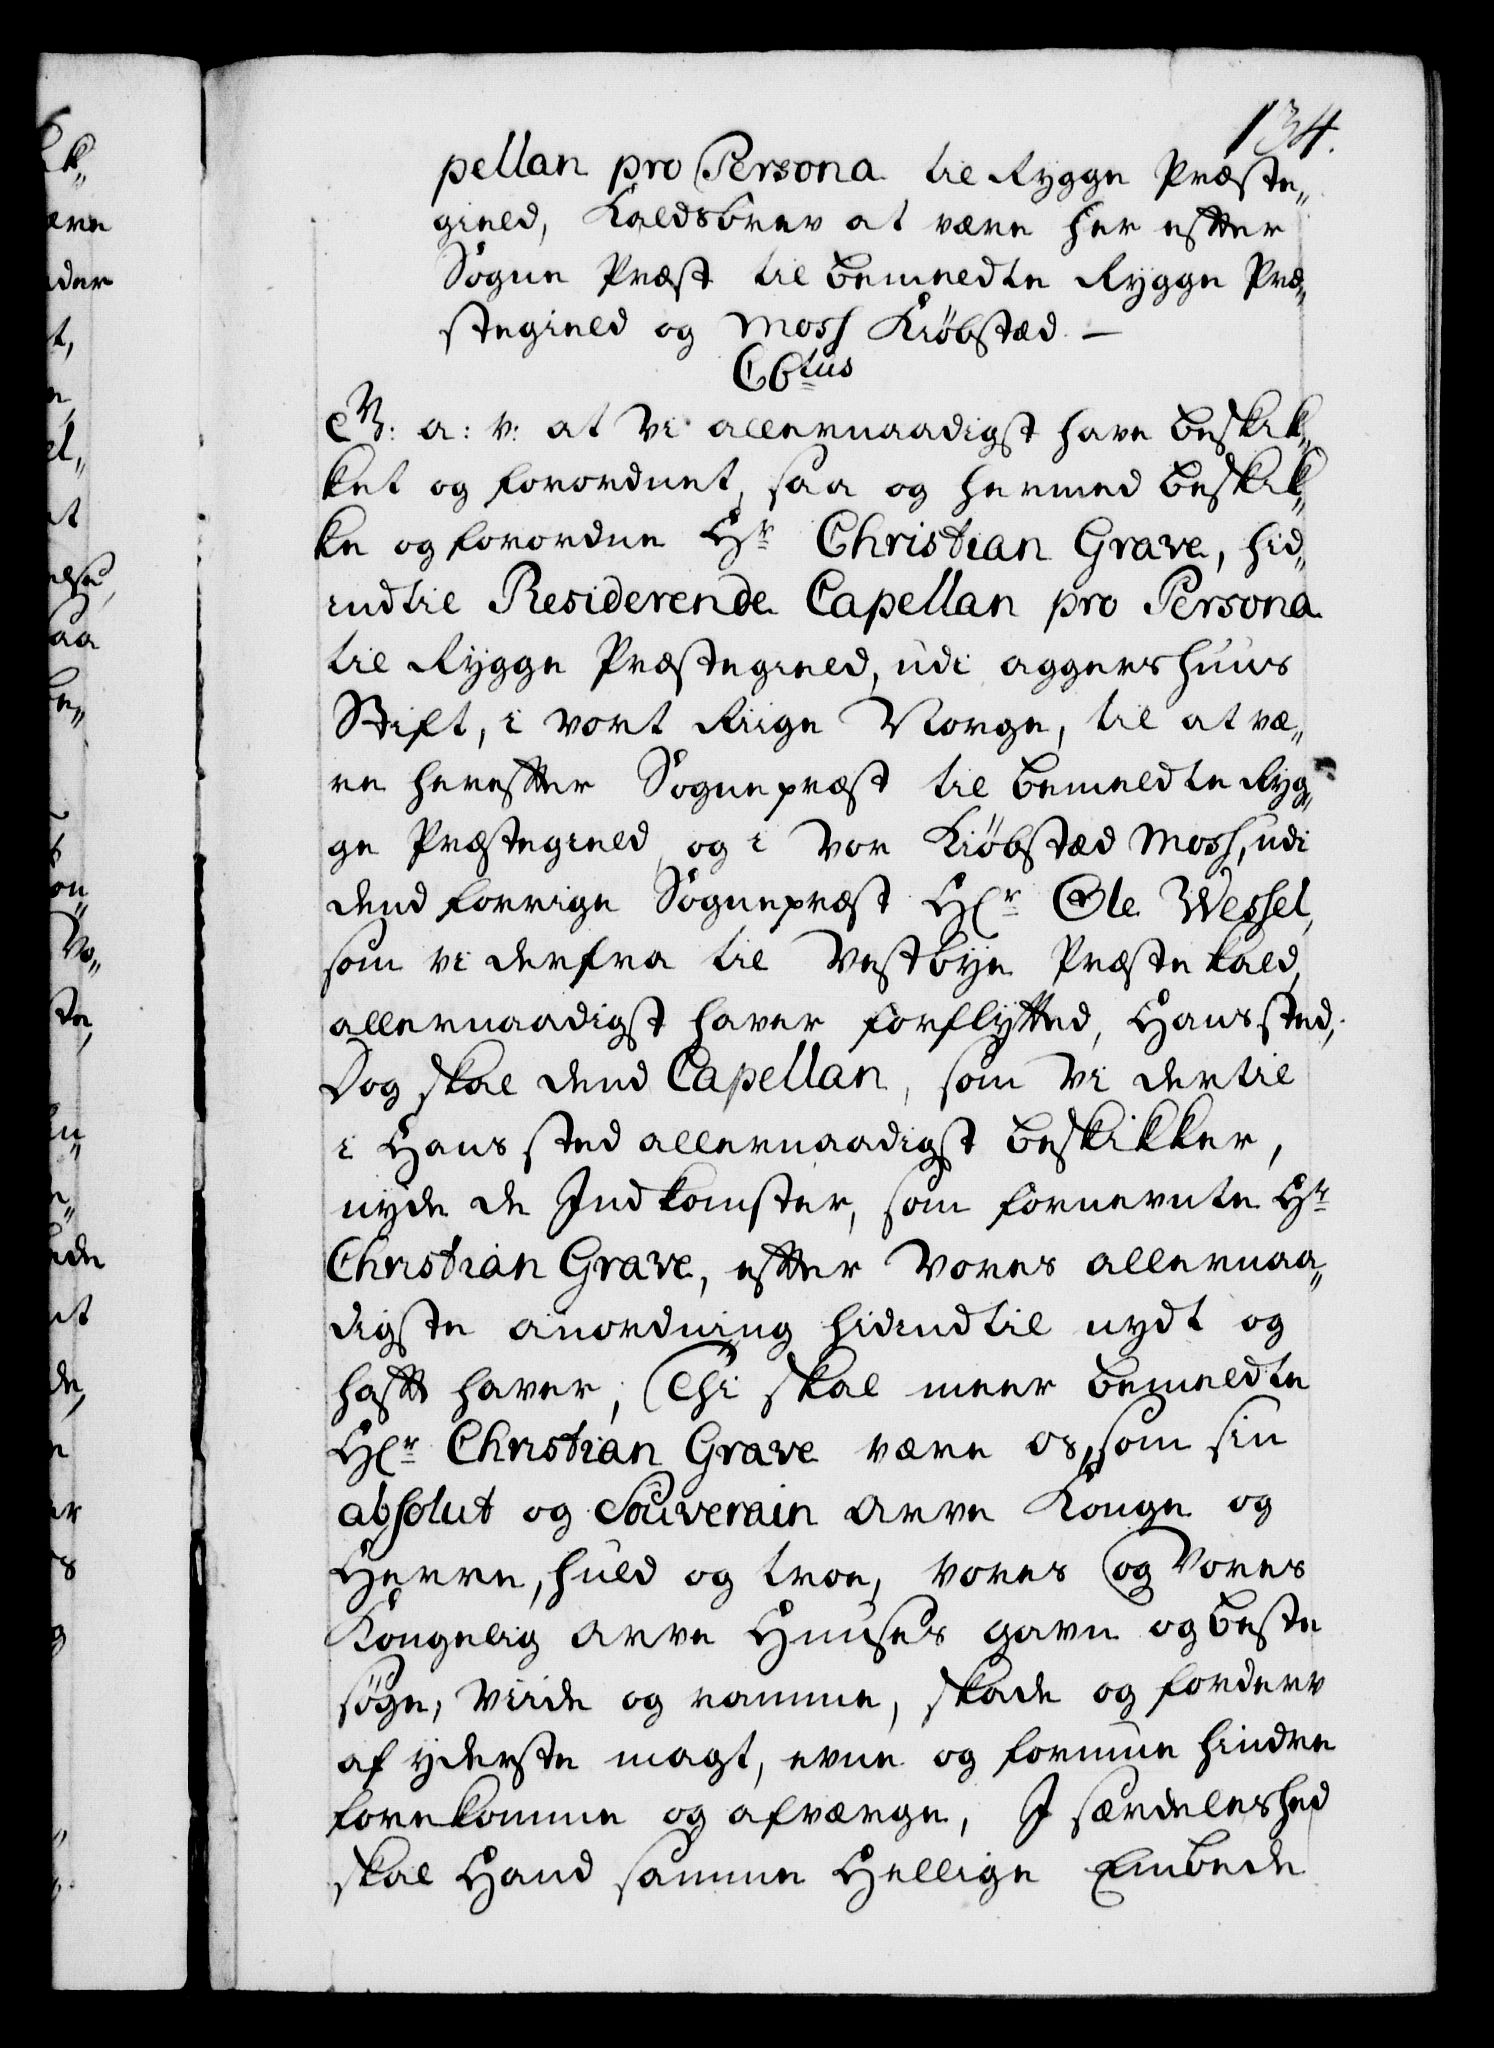 134.
pellan pro Persona til Rygge Præste„
gield, Kaldsbrev at være her efter
Sogne Præst til bemeldte Rygge Præ„
stegield og Mosh Kiøbstæd. —
C6tus
V: a: v: at Vi allernaadigst have beskik„
ket og forordnet, saa og hermed beskik„
ke og forordne Hr Christian Grave, hid„
indtil Residerende Capellan pro Persona
til Rygge Præstegield, udi Aggershuus
Stift, i vort Riige Norge, til at væ„
re herefter Sognepræst til bemeldte Ryg„
ge Præstegield, og i vor Kiøbstæd Mosh, udi
dend forrige Sognepræst Hr Ole Wessel,
som vi derfra til Vestbye Præstekald,
allernaadigst haver forflytted, Hans sted;
Dog skal dend Capellan, som Vi dertil
i Hans sted allernaadigst beskikker,
nyde de Indkomster, som fornevnte Hr
Christian Grave, efter Vores allernaa„
digste anordning hidindtil nydt og
haft haver, Thi skal meer bemeldte
Hr Christian Grave være os, som sin
absolut og Souverain Arve Konge og
Herre, huld og troe, Vores og Vores
Kongelig Arve Huuses gavn og beste
søge, Viide og ramme, skade og forderv
af yderste magt, evne og formue hindre
forekomme og afværge, I særdeleshed
skal Hand samme Hellige Embede